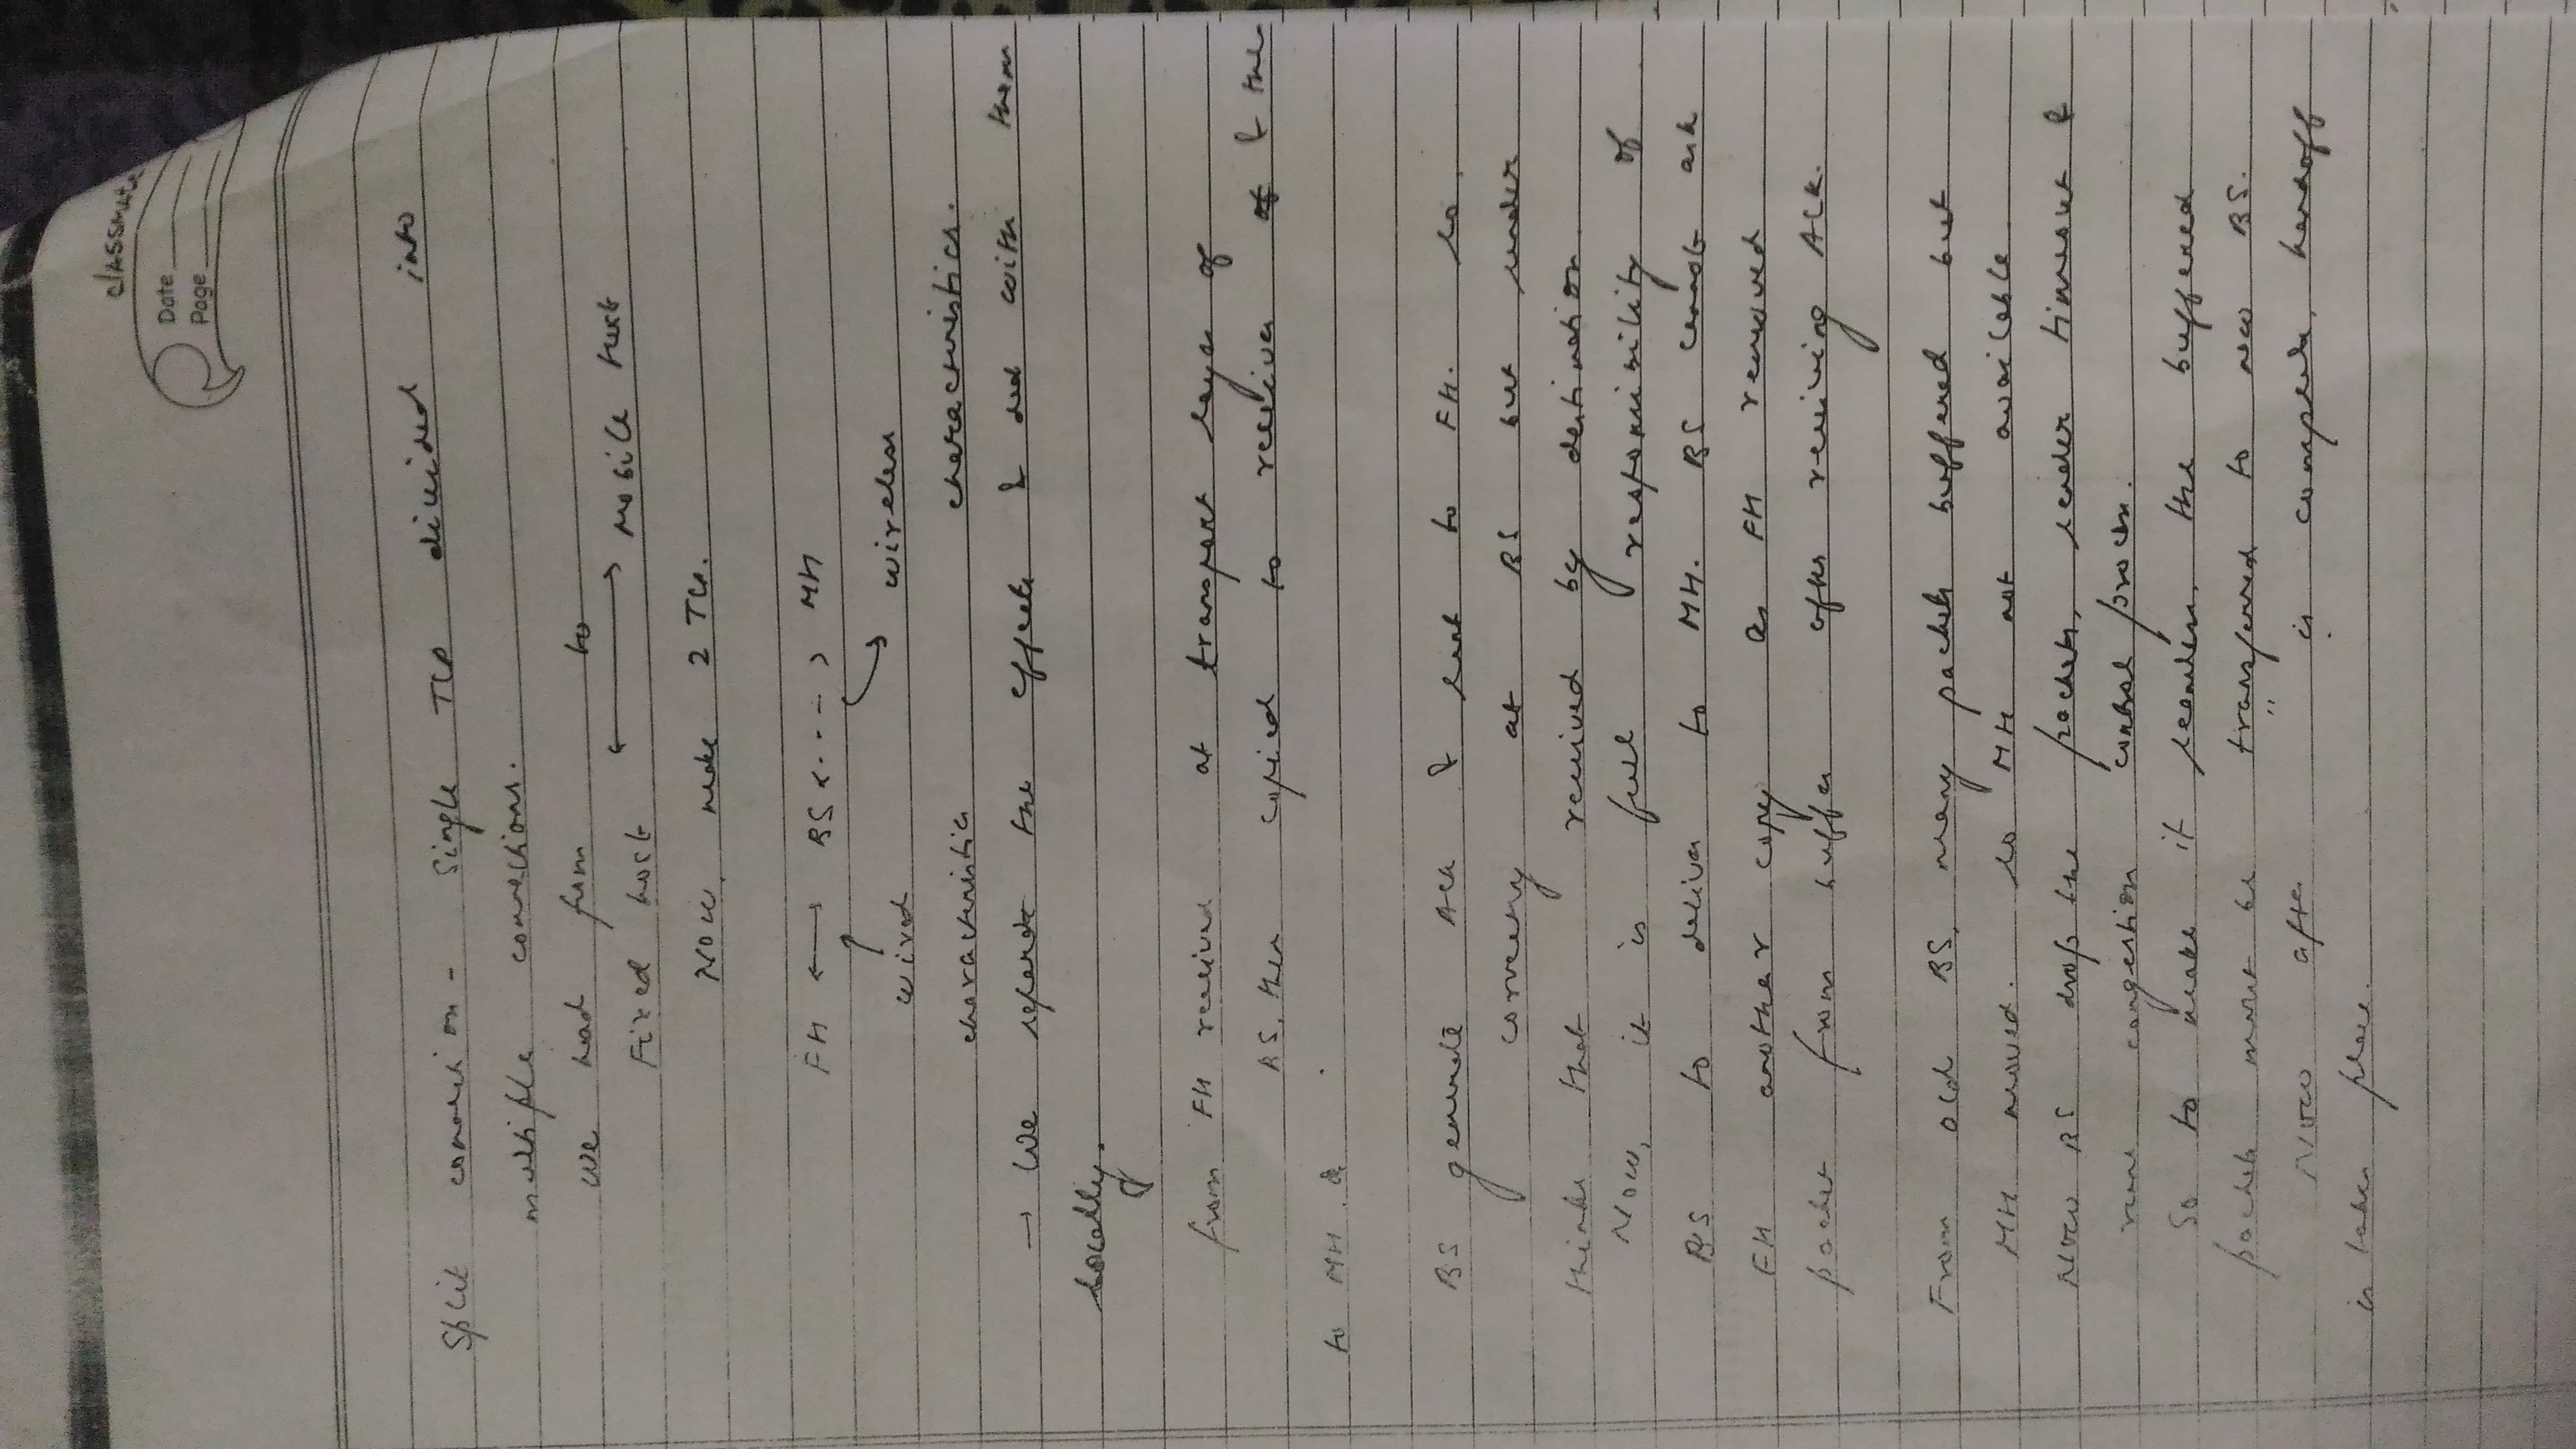 classmate
Date
Page
Split connection - Single TCP divided into
multiple connections.
We had from to
Fixed host ⟷ Mobile host
Now, make 2 TCP.
FH ⟷ BS <---> MH
wired wireless
characteristics characteristics.
→ We separate the effects & deal with them
locally.
from FH received at transport layer of
BS, then copied to receiver & then
to MH.
BS generate Ack & sent to FH. So,
correctly at BS but sender
thinks that received by destination
Now, it is full responsibility of
BS to deliver to MH. BS cannot ask
FH another copy as FH removed
packet from buffer after receiving Ack.
From old BS, many packets buffered but
MH moved. So MH not available
Now BS drop the packets, sender timeout &
congestion control process.
So to make it seamless, the buffered
packets must be transferred to new BS.
Now after " is complete, handoff
is taken place.